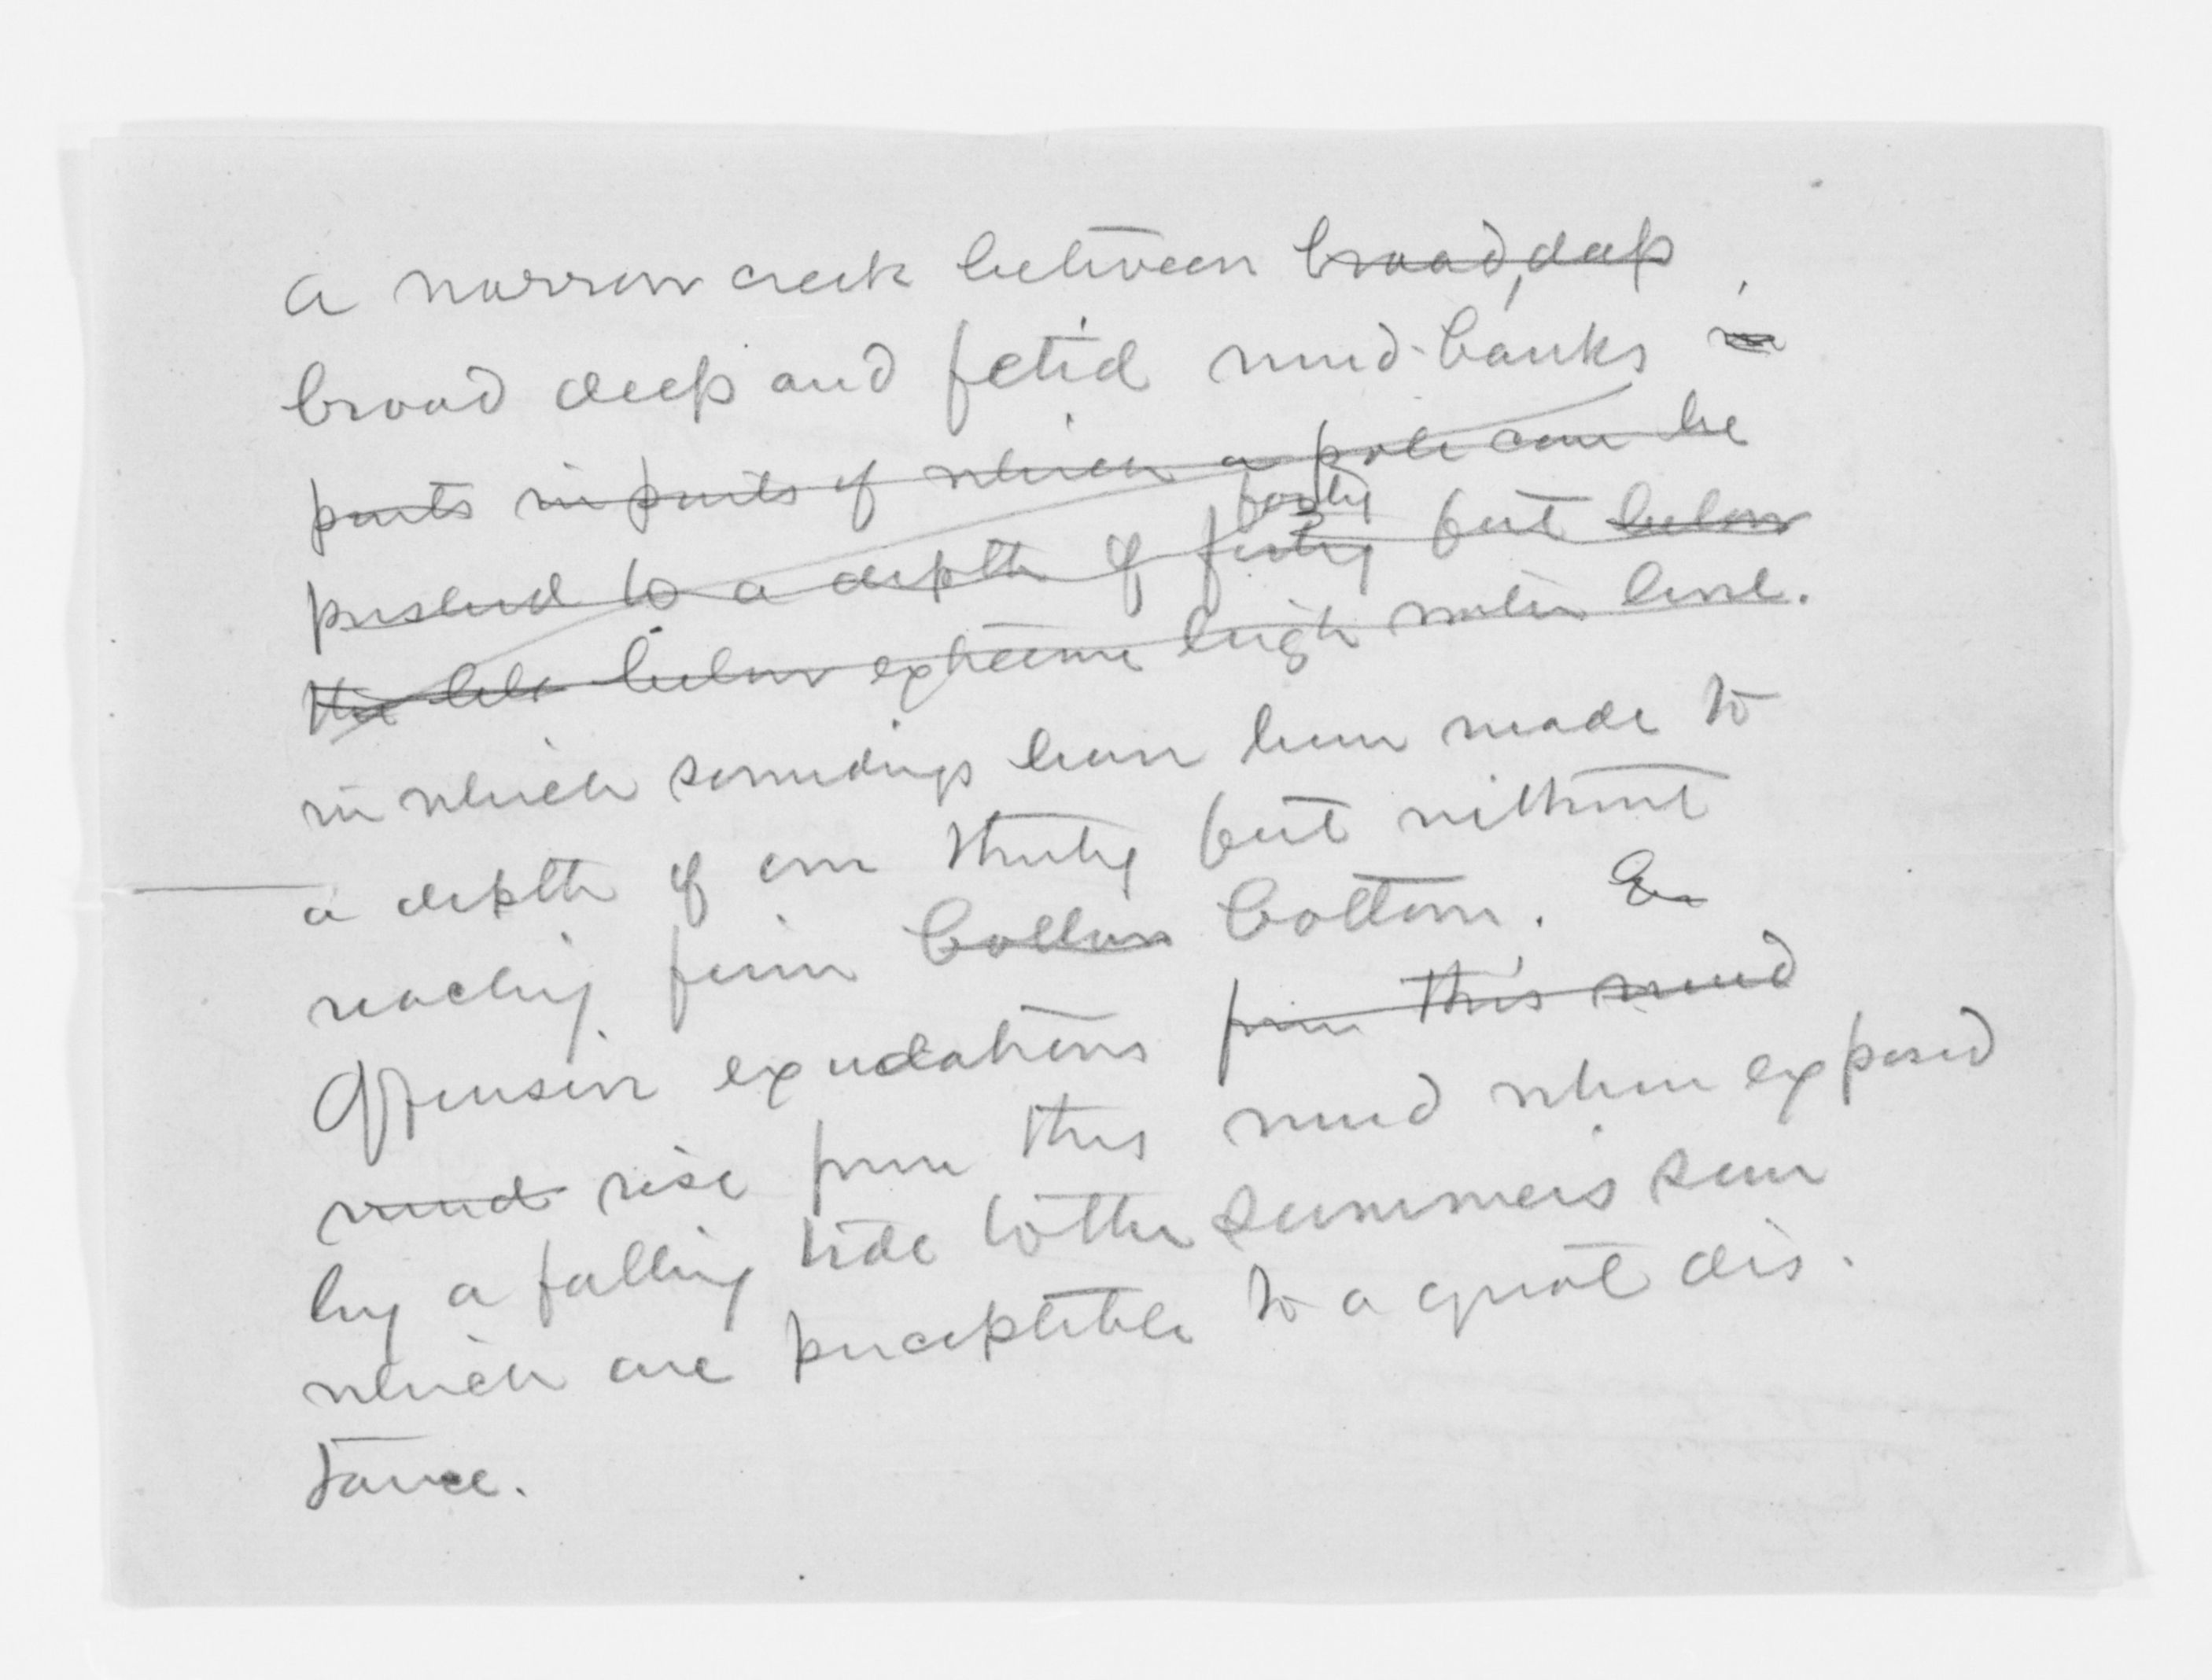 a narrow creek between broad, deep
broad deep and fetid mud-banks in
parts in parts of which a pole can be
forty
pushed to a depth of forty feet below
the below extreme high water level.
in which soundings have been made to
a depth of over thirty feet without
reaching firm bottom bottom. Ex
Offensive exudations from this mud
mud rise from this mud when exposed
by a falling tide to the summer's sun
which are perceptible to a great dis-
tance.